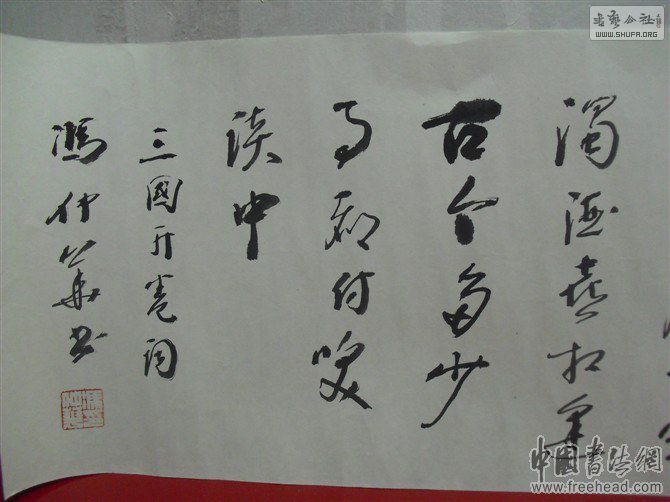 書藝公社
WWW.SHUFA.ORG
濁酒喜相逢
古今多少
事都付笑
谈中
三國开卷词
馮仲華书
中國書法網
www.freehead.com